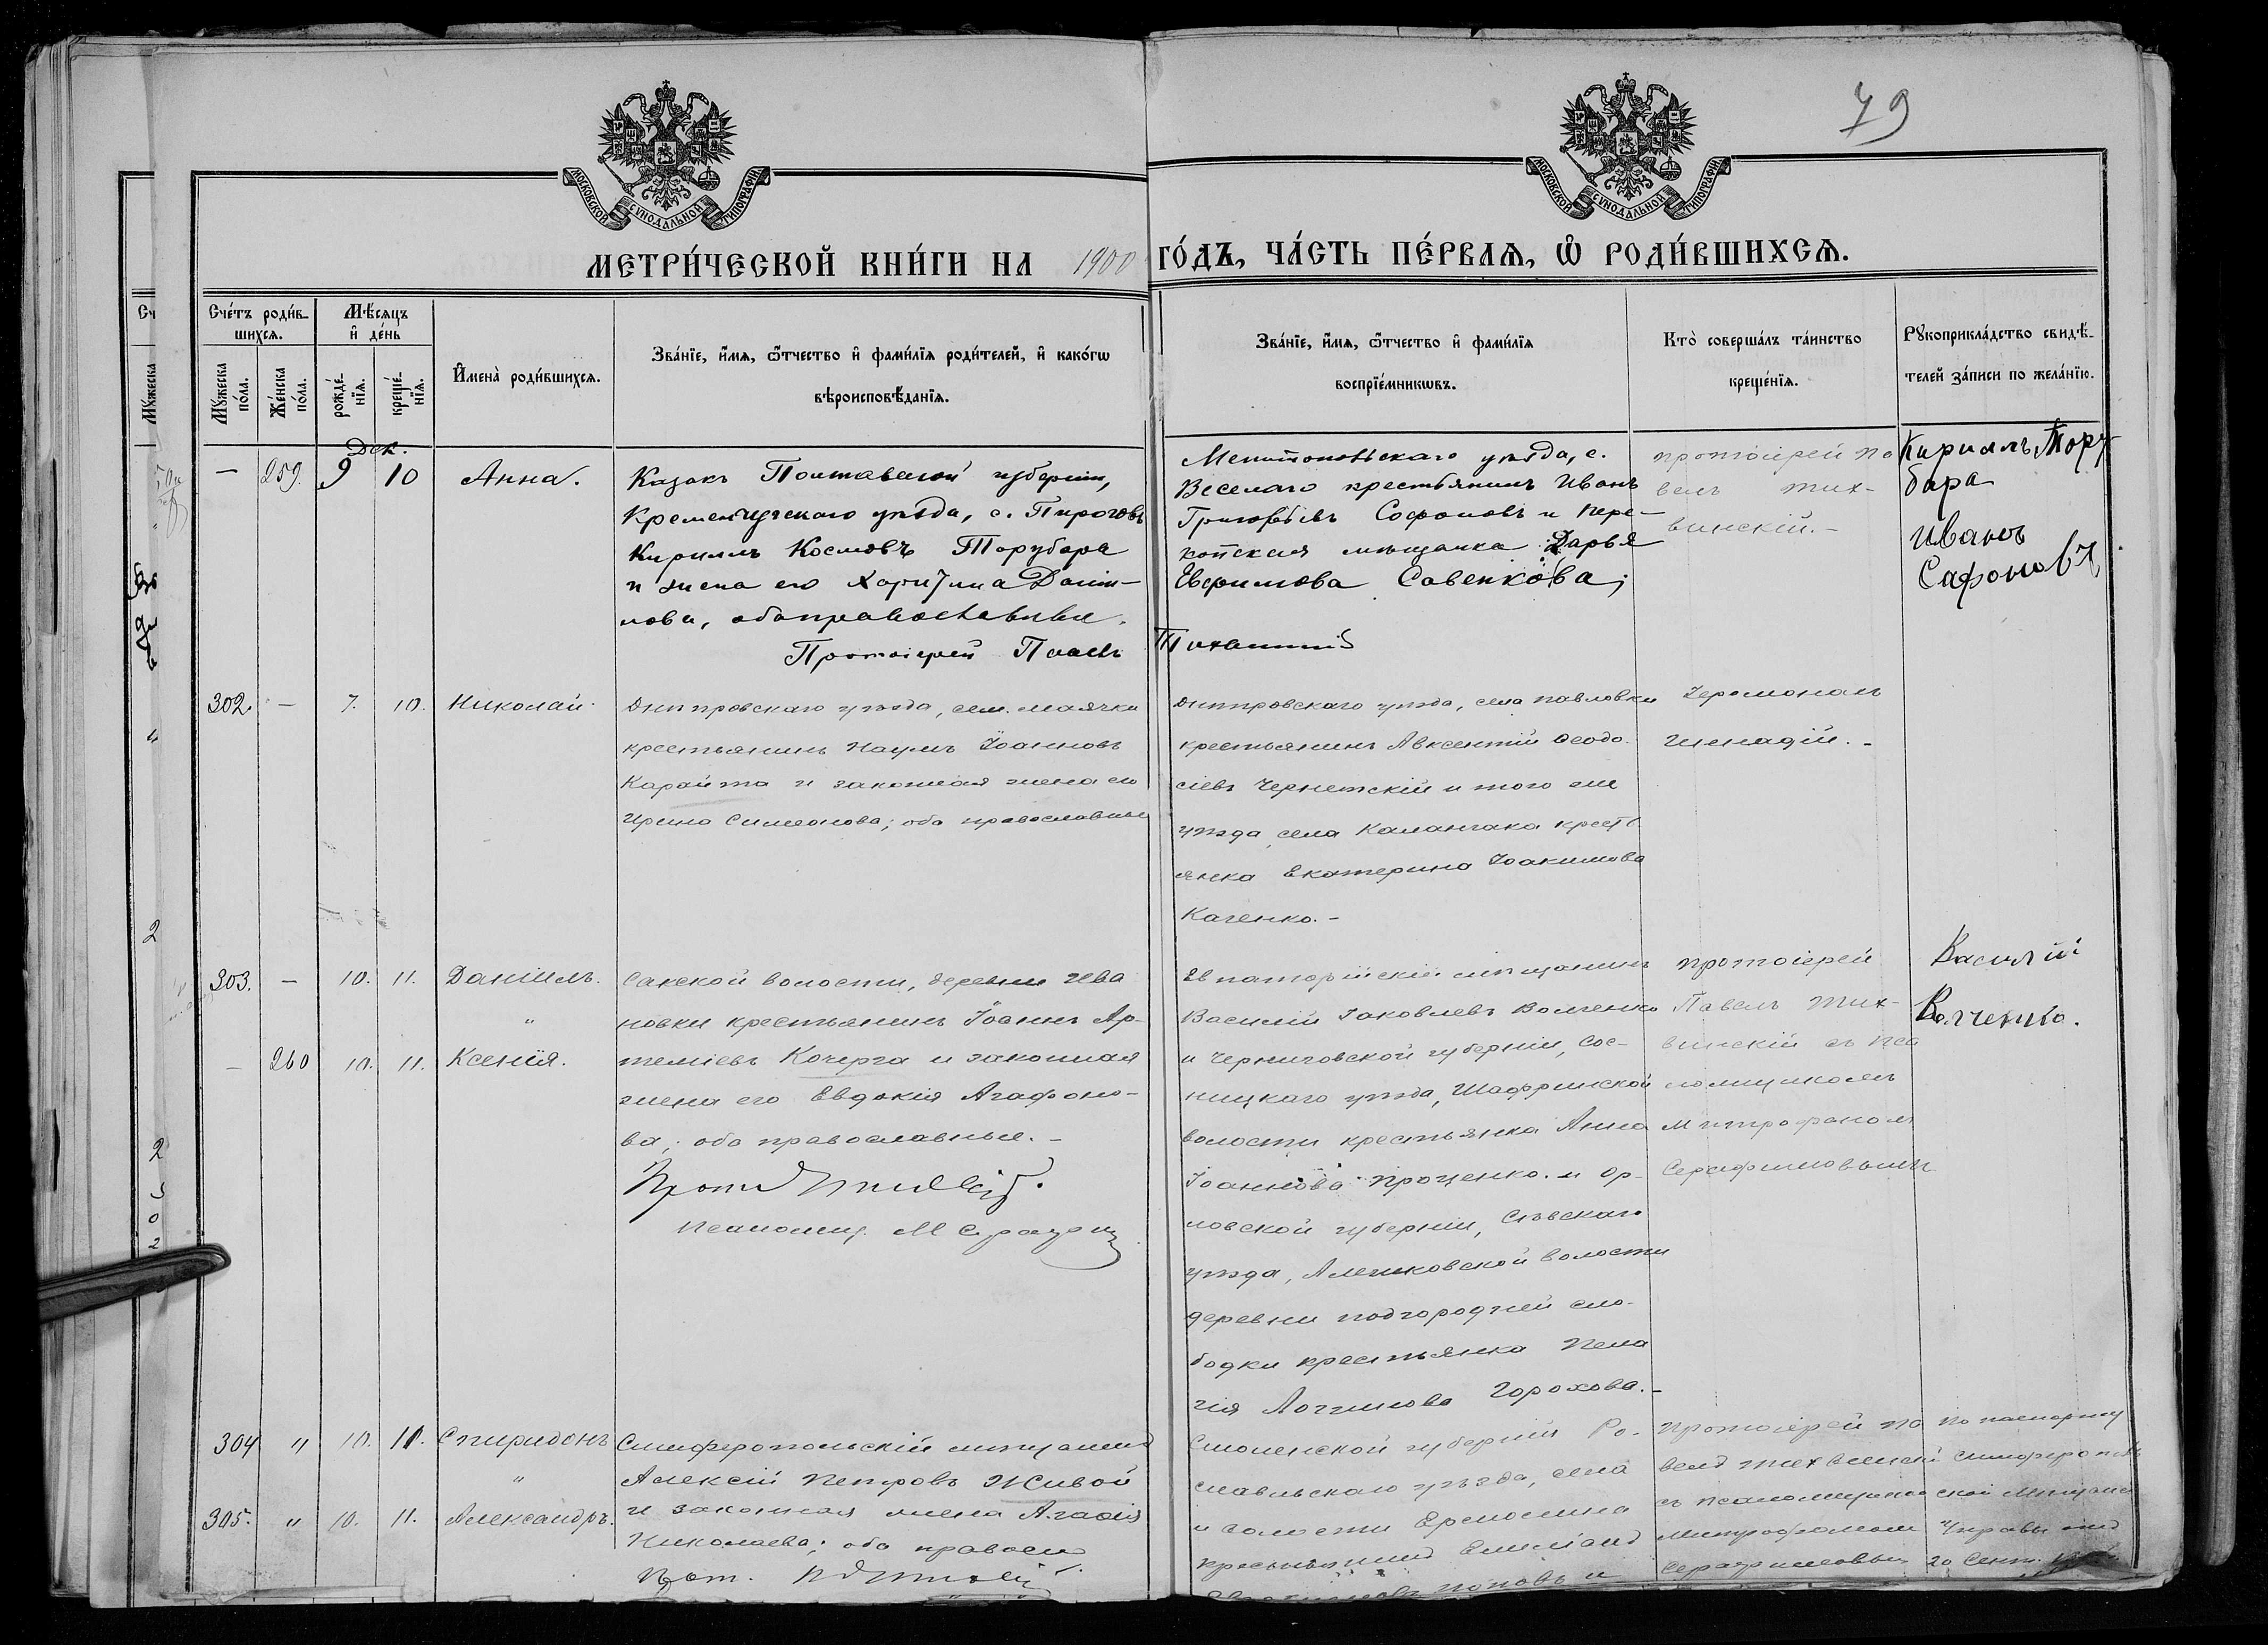 79
МОСКОВСКОЙ СѴНОДАЛЬНОЙ ТИПОГРАФІИ
МОСКОВСКОЙ СѴНОДАЛЬНОЙ ТИПОГРАФІИ
МЕТРИ́ЧЕСКОЙ КНИ́ГИ НА 1900 ГО́ДЪ, ЧА́СТЬ ПЕ́РВАѦ, Ѽ РОДИ́ВШИХСѦ.
Сче́тъ роди́в-
шихсѧ.
Мꙋ́жеска по́ла.
Же́нска по́ла.
Мѣ́сѧцъ
и҆ де́нь
рожде́-
нїѧ.
креще́-
нїѧ.
И҆мена̀ роди́вшихсѧ.
Зва́нїе, и҆́мѧ, ѻ҆́тчество и҆ фами́лїѧ роди́телей, и҆ како́гѡ
вѣроисповѣ́данїѧ.
Зва́нїе, и҆́мѧ, ѻ҆́тчество и҆ фами́лїѧ
воспрїе́мникѡвъ.
Кто̀ соверша́лъ та́инство
креще́нїѧ.
Рꙋкоприкла́дство свидѣ́-
телей за́писи по жела́нїю.
Дек.
— 259. 9 10 Анна.
Казакъ Полтавской губерніи,
Кременчугскаго уѣзда, с. Пироговъ
Кириллъ Космовъ Торубара
и жена его Харитина Дани-
лова, оба православные.
Протоіерей Павелъ Тихвинскій
Мелитопольскаго уѣзда, с.
Веселаго крестьянинъ Иванъ
Григорьевъ Софоновъ и Пере-
копская мѣщанка Дарья
Евфимова Савенкова;
протоіерей Па
велъ Тих-
винскій.-
Кириллъ Тору
бара
Иванъ
Сафоновъ
302. — 7. 10. Николай.
Днѣпровскаго уѣзда, сел. Маячки
крестьянинъ Наумъ Іоанновъ
Карайта и законная жена его
Ирина Симеонова; оба православные
Днѣпровскаго уѣзда, села Павловки
крестьянинъ Авксентій Ѳеодо-
сіевъ Чернетскій и того же
уѣзда, села Каланчака кресть
янка Екатерина Іоакимова
Каченко.-
Іеромонахъ
Геннадій.-
303. — 10. 11. Даніилъ.
"
— 260 10. 11. Ксенія.
Сакской волости, деревни Чебо
новки крестьянинъ Іоаннъ Ар-
теміевъ Кочерга и законная
жена его Евдокія Агафоно-
ва; оба православные.-
Псаломщ. М Серафим
Евпаторійскій мѣщанинъ
Василій Іаковлевъ Волченко
и Черниговской губерніи, Сос-
ницкаго уѣзда,
волости крестьянка Анна
Іоаннова Проценко. и Ор-
ловской губерніи, Сѣвскаго
уѣзда, Алешковской волости
деревни Подгородней сло-
бодки крестьянка Пела
гія Логгинова Горохова.-
протоіерей
Павелъ Тих-
винскій съ пса
ломщикомъ
Митрофаномъ
Серафимовымъ
Василій
Волченко.
304 " 10. 11. Спиридонъ
"
305. " 10. 11. Александръ.
Симферопольскій мѣщанинъ
Алексій Петровъ Живой
и законная жена Агафія
Николаева; оба правосл
Прот.
Смоленской губерніи Ро-
славльскаго уѣзда, села
и волости
крестьянинъ Емиліанъ
Поповъ и
Протоіерей Па
велъ Тихвинскій
съ псаломщикомъ
Митрофаномъ
Серафимовым
По паспорту
Симферополь
ской Мѣщанс
Управы отъ
20 Сент.